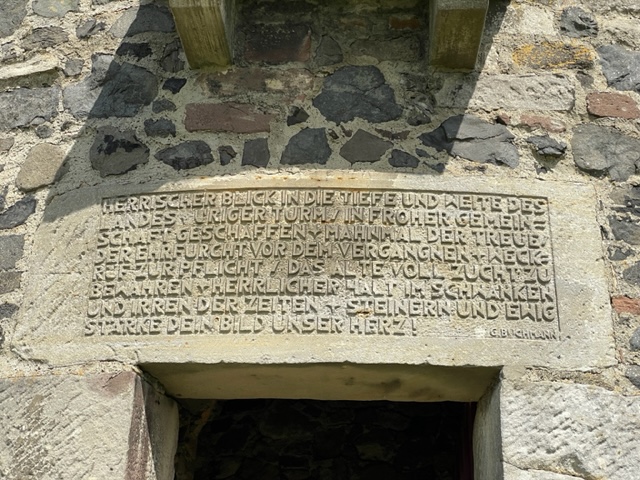 HERRISCHER BLICK IN DIE TIEFE UND WEITE DES
LANDES · URIGER TURM / IN FROHER GEMEIN=
SCHAFT GESCHAFFEN · MAHNMAL DER TREUE,
DER EHRFURCHT VOR DEM VERGANGNEN · WECK=
RUF ZUR PFLICHT / DAS ALTE VOLL ZUCHT ZU
BEWAHREN · HERRLICHER HALT IM SCHWANKEN
UND IRREN DER ZEITEN · STEINERN UND EWIG
STÄRKE DEIN BILD UNSER HERZ!
G. BUCHMANN